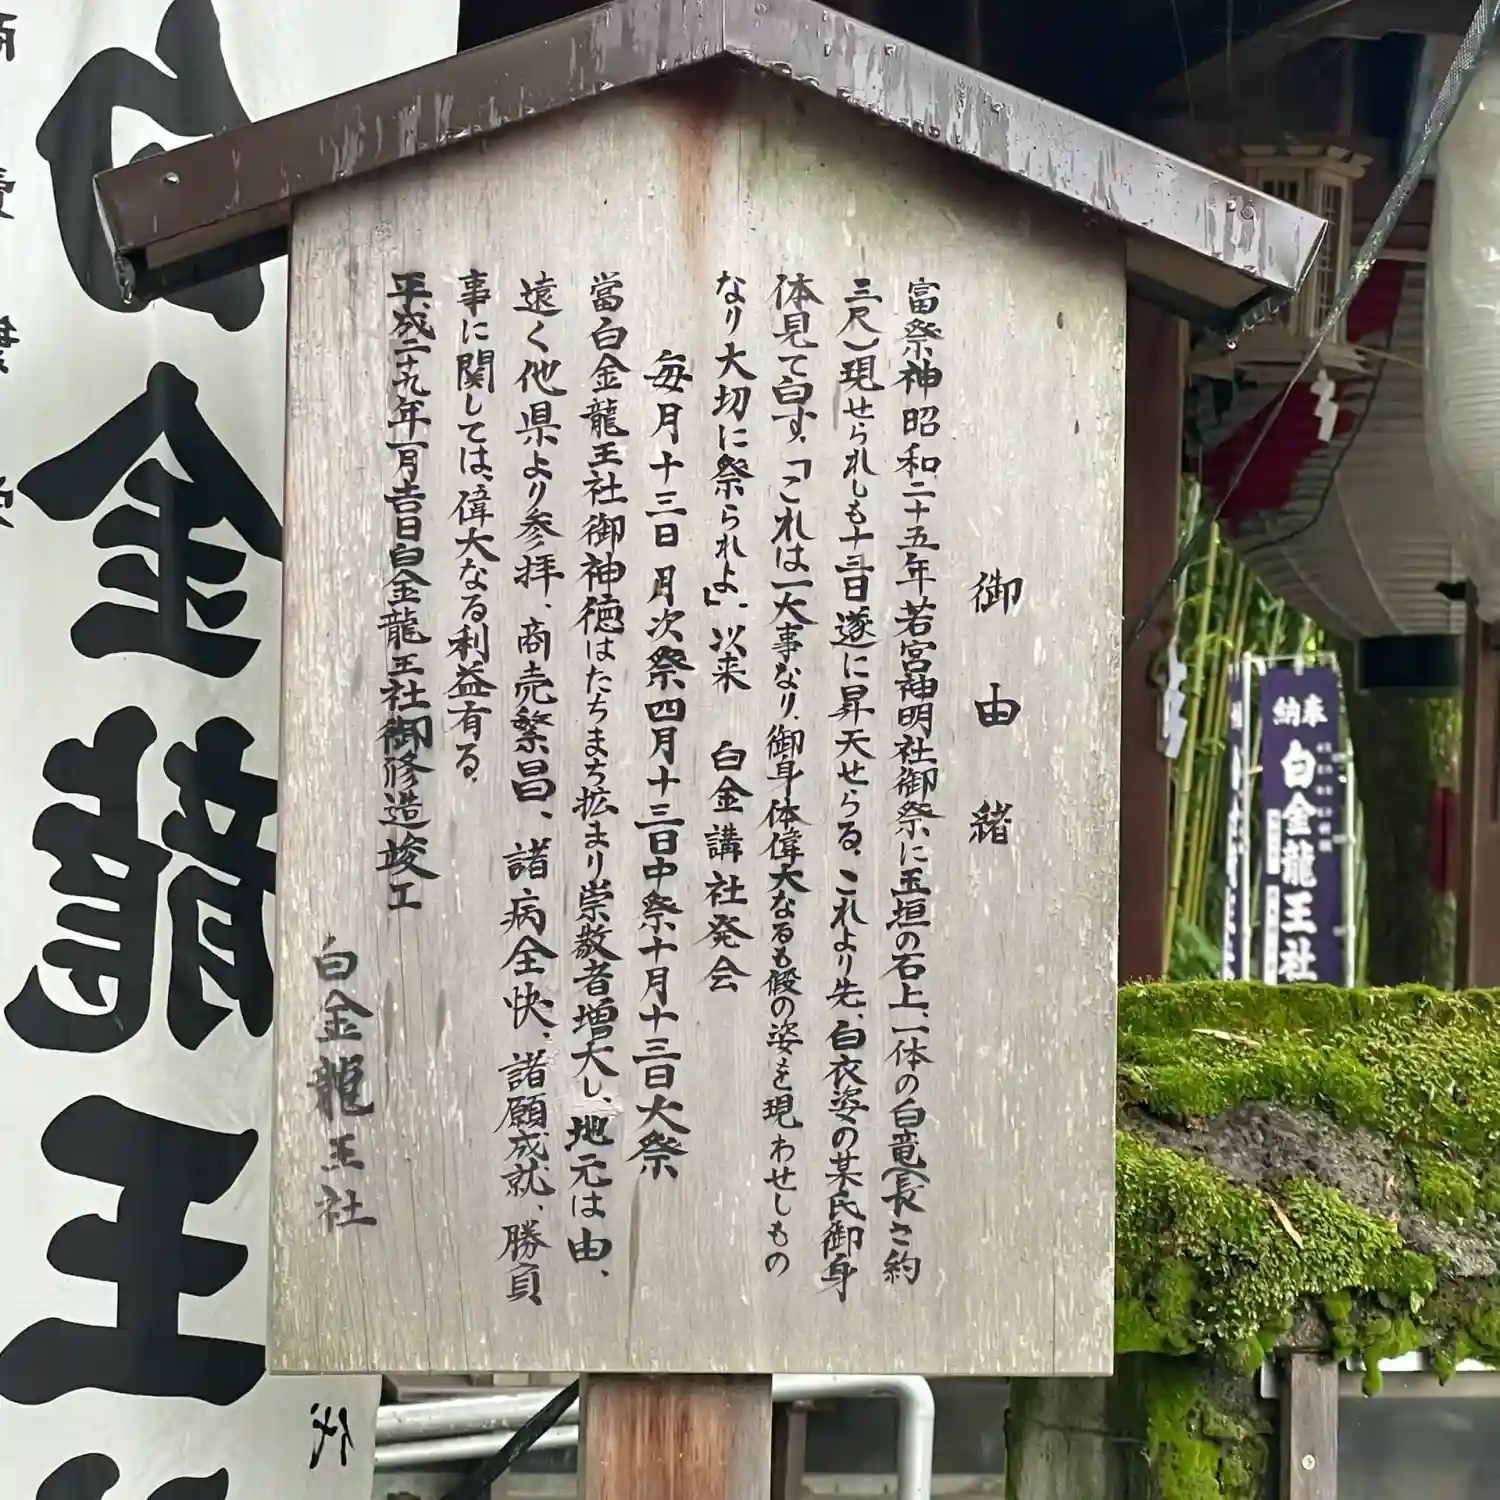 御由緒
富祭神昭和二十五年若宮神明社御祭に玉垣の石上、一体の白竜(長さ約
三尺)現せられしも十三日遂に昇天せらる。これより先、白衣姿の某氏御身
体見て白す。「これは一大事なり、御身体偉大なるも假の姿を現わせしもの
なり大切に祭られよ」、以来 白金講社発会
毎月十三日 月次祭四月十三日中祭十月十三日大祭
當白金龍王社御神徳はたちまち拡まり崇敬者増大し、地元は由、
遠く他県より参拝、商売繁昌、諸病全快、諸願成就、勝負
事に関しては、偉大なる利益有る。
平成二十九年一月吉日白金龍王社御修造竣工
白金龍王社
奉納
白金龍王社
白金龍王